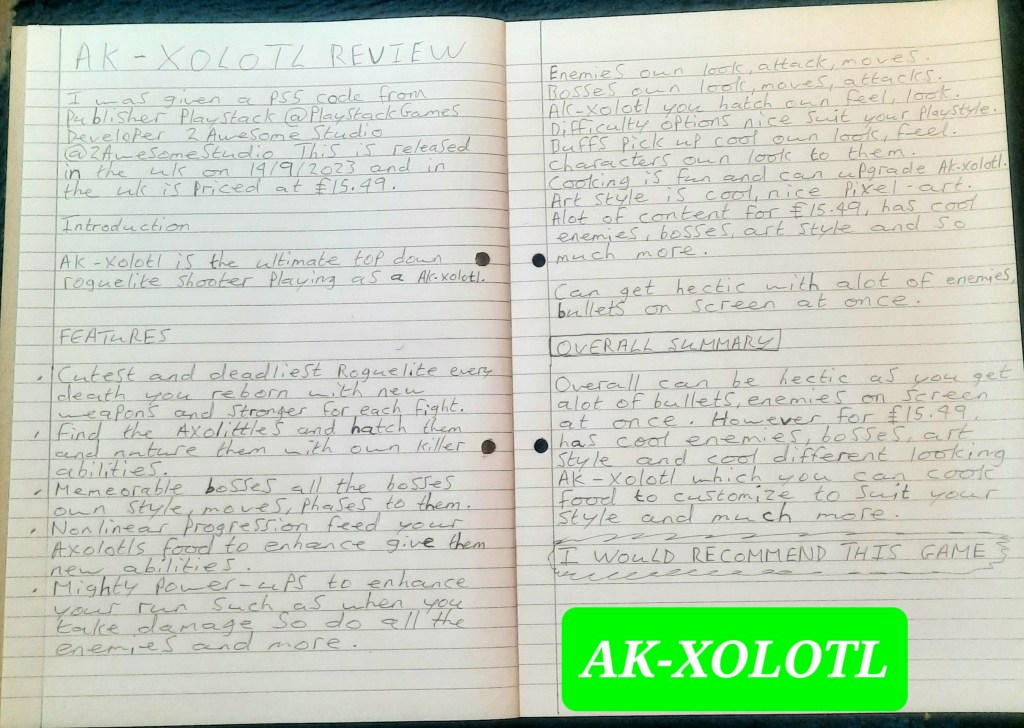 AK-XOLOTL REVIEW
I was given a PS5 code from
Publisher Playstack @PlaystackGames
Developer 2 Awesome Studio
@2AwesomeStudio This is released
in the uk on 14/9/2023 and in
the uk is priced at £15.49.
Introduction
AK-Xolotl is the ultimate top down
roguelite shooter Playing as a AK-xolotl.
FEATURES
• Cutest and deadliest Roguelite every
death you reborn with new
weapons and stronger for each fight.
• Find the Axolittles and hatch them
and nuture them with own killer
abilities.
• Memeorable bosses all the bosses
own style, moves, phases to them.
• Nonlinear progression feed your
Axolotls food to enhance give them
new abilities.
• Mighty Power-ups to enhance
your run such as when you
take damage so do all the
enemies and more.
Enemies own look, attack, moves.
Bosses own look, moves, attacks.
AK-Xolotl you hatch own feel, look.
Difficulty options nice suit your Playstyle.
Buffs pick up cool own look, feel.
Characters own look to them.
Cooking is fun and can upgrade AK-xolotl.
Art style is cool, nice Pixel-art.
Alot of content for £15.49, has cool
enemies, bosses, art style and so
much more.
Can get hectic with alot of enemies,
bullets on screen at once.
OVERALL SUMMARY
Overall can be hectic as you get
alot of bullets, enemies on screen
at once. However for £15.49,
has cool enemies, bosses, art
style and cool different looking
AK-Xolotl which you can cook
food to customize to suit your
style and much more.
I WOULD RECOMMEND THIS GAME
AK-XOLOTL